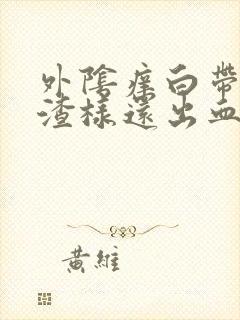 外陰痒白帶
渣樣還出血
黃維